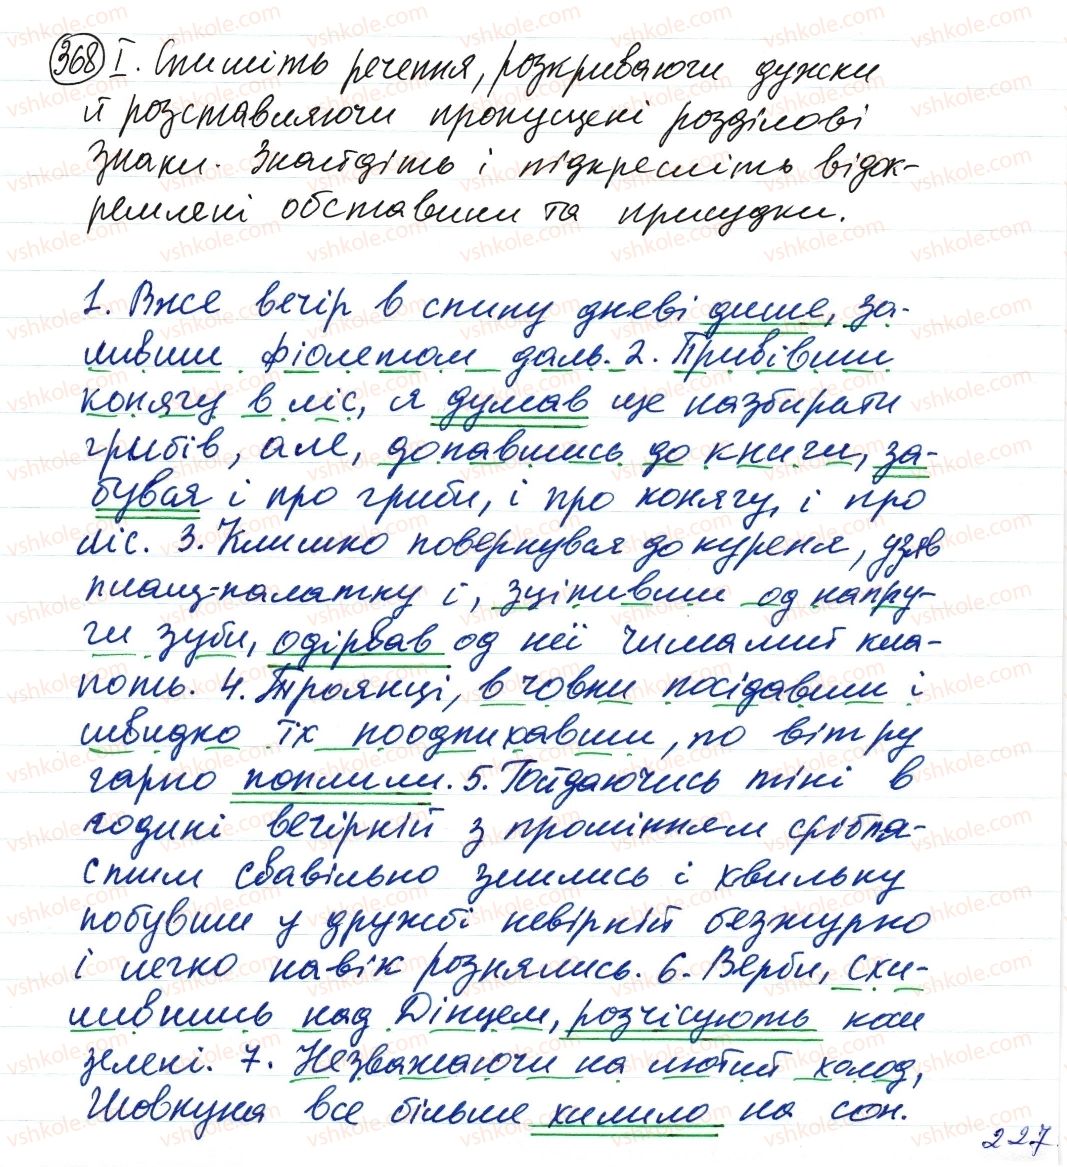 368 I. Спишіть речення, розкриваючи дужки
й розставляючи пропущені розділові
знаки. Знайдіть і підкресліть відок-
ремлені обставини та присудки.
1. Вже вечір в спину дневі дише, за-
ливши фіолетом даль. 2. Привівши
конягу в ліс, я думав ще назбирати
грибів, але, допавшись до книги, за-
бував і про гриби, і про конягу, і про
ліс. 3. Климко повернувся до куреня, узяв
плащ-палатку і, зціпивши од напру-
ги зуби, одірвав од неї чималий кла-
поть. 4. Троянці, в човни посідавши і
швидко їх поодпихавши, по вітру
гарно поплили. 5. Гойдаючись тіні в
годині вечірній з промінням срібла-
стим свавільно злились і хвильку
побувши у дружбі невірній безжурно
і легко навік рознялись. 6. Верби, схи-
лившись над Дінцем, розчісують коси
зелені. 7. Незважаючи на лютий холод,
Шовкуна все більше хилило на сон.
227
vshkole.com